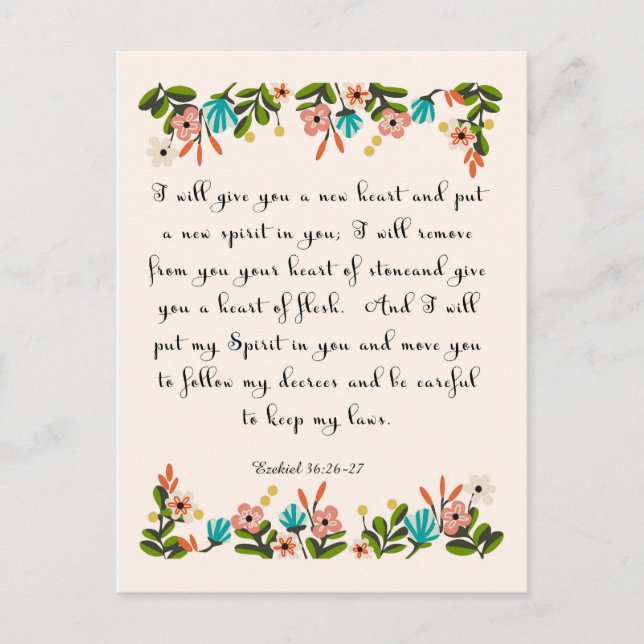 I will give you a new heart and put
a new spirit in you; I will remove
from you your heart of stoneand give
you a heart of flesh.  And I will
put my Spirit in you and move you
to follow my decrees and be careful
to keep my laws.
Ezekiel 36:26-27